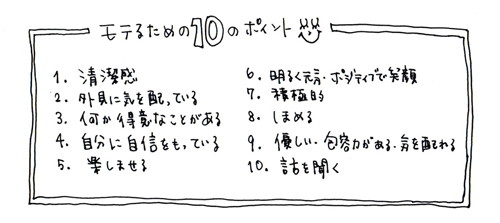 モテるための10のポイント
1. 清潔感
2. 外見に気を配っている
3. 何か得意なことがある
4. 自分に自信をもっている
5. 楽しませる
6. 明るく元気・ポジティブで笑顔
7. 積極的
8. ほめる
9. 優しい・包容力がある・気を配れる
10. 話を聞く